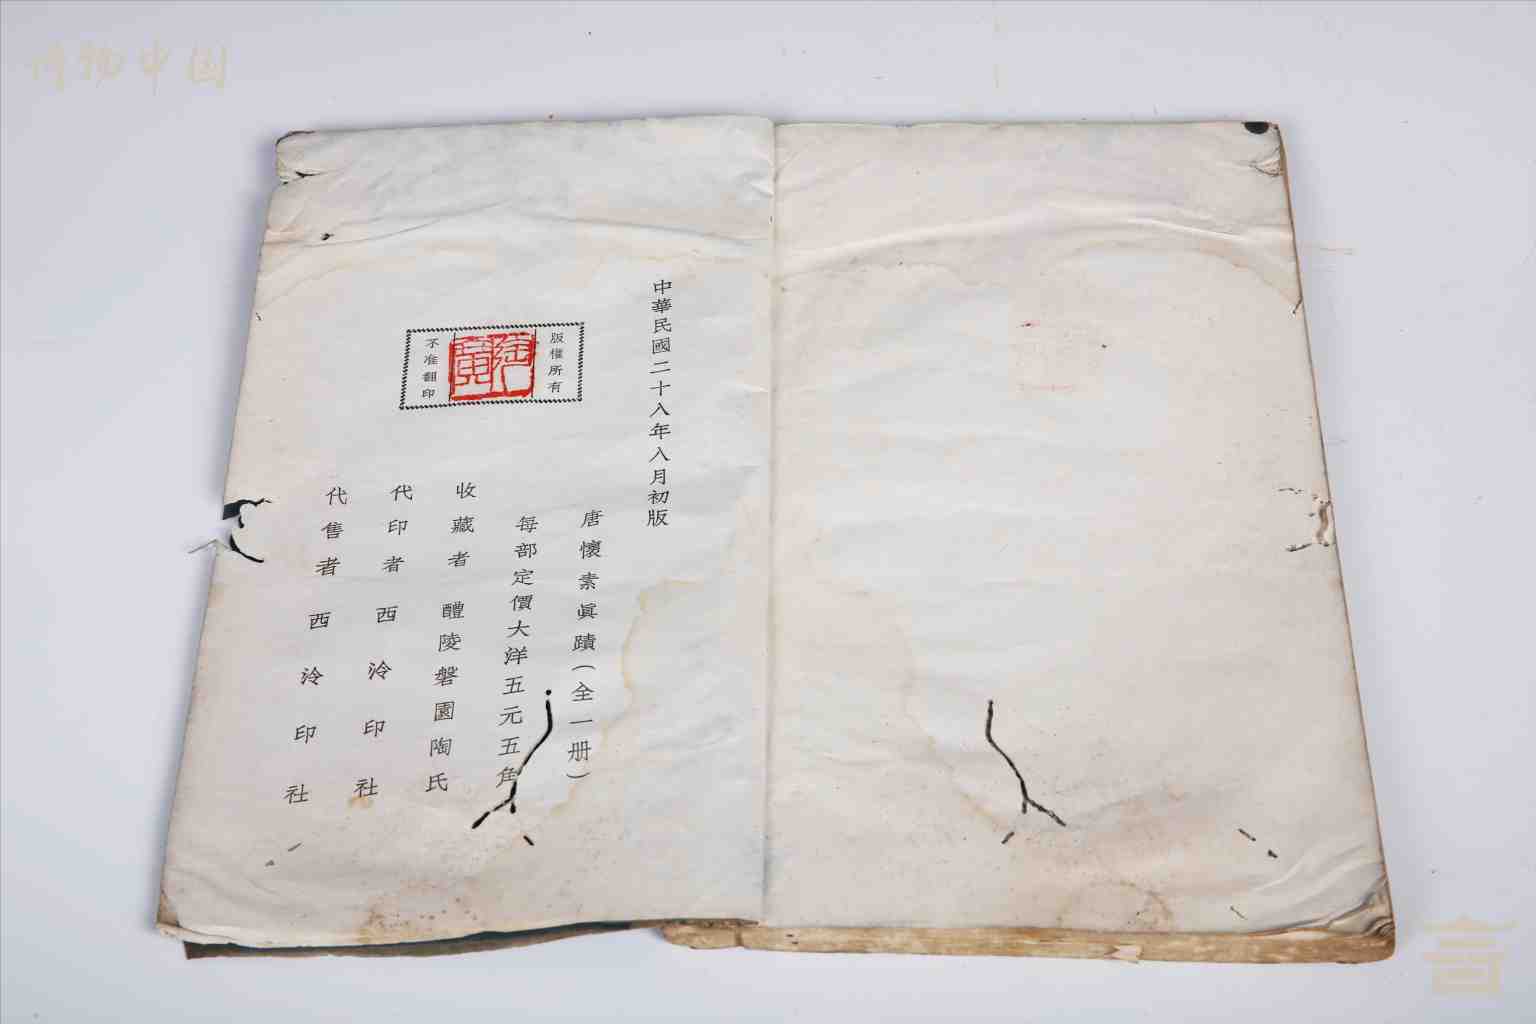 博物中国
中華民國二十八年八月初版
版權所有
不准翻印
唐懷素眞蹟(全一册)
每部定價大洋五元五角
收藏者 醴陵磐園陶氏
代印者 西泠印社
代售者 西泠印社